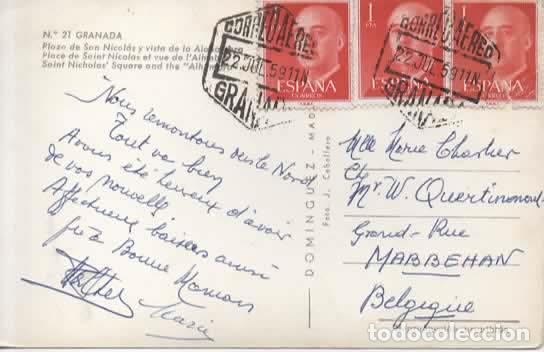 N.º 21 GRANADA
Plaza de San Nicolás y vista de la Alhambra
Place de Saint Nicolas et vue de l'Alhambra
Saint Nicholas' Square and the "Alhambra"
CORREO AEREO
22 JUL 59 11N
GRANADA
CORREO AEREO
22 JUL 59 11N
GRANADA
1 PTA
ESPAÑA
CORREOS
ESPAÑA
ESPAÑA
Nous remontons vers le Nord
Tout va bien
Avons été heureux d'avoir
de vos nouvelles
Affectueux baisers aussi
à Bonne Maman
Marie
DOMINGUEZ - MADRID
Foto J. Caballero
Mlle Marie Charlier
Mr. W. Quertinmont
Grand-Rue
MARBEHAN
Belgique
todocoleccion